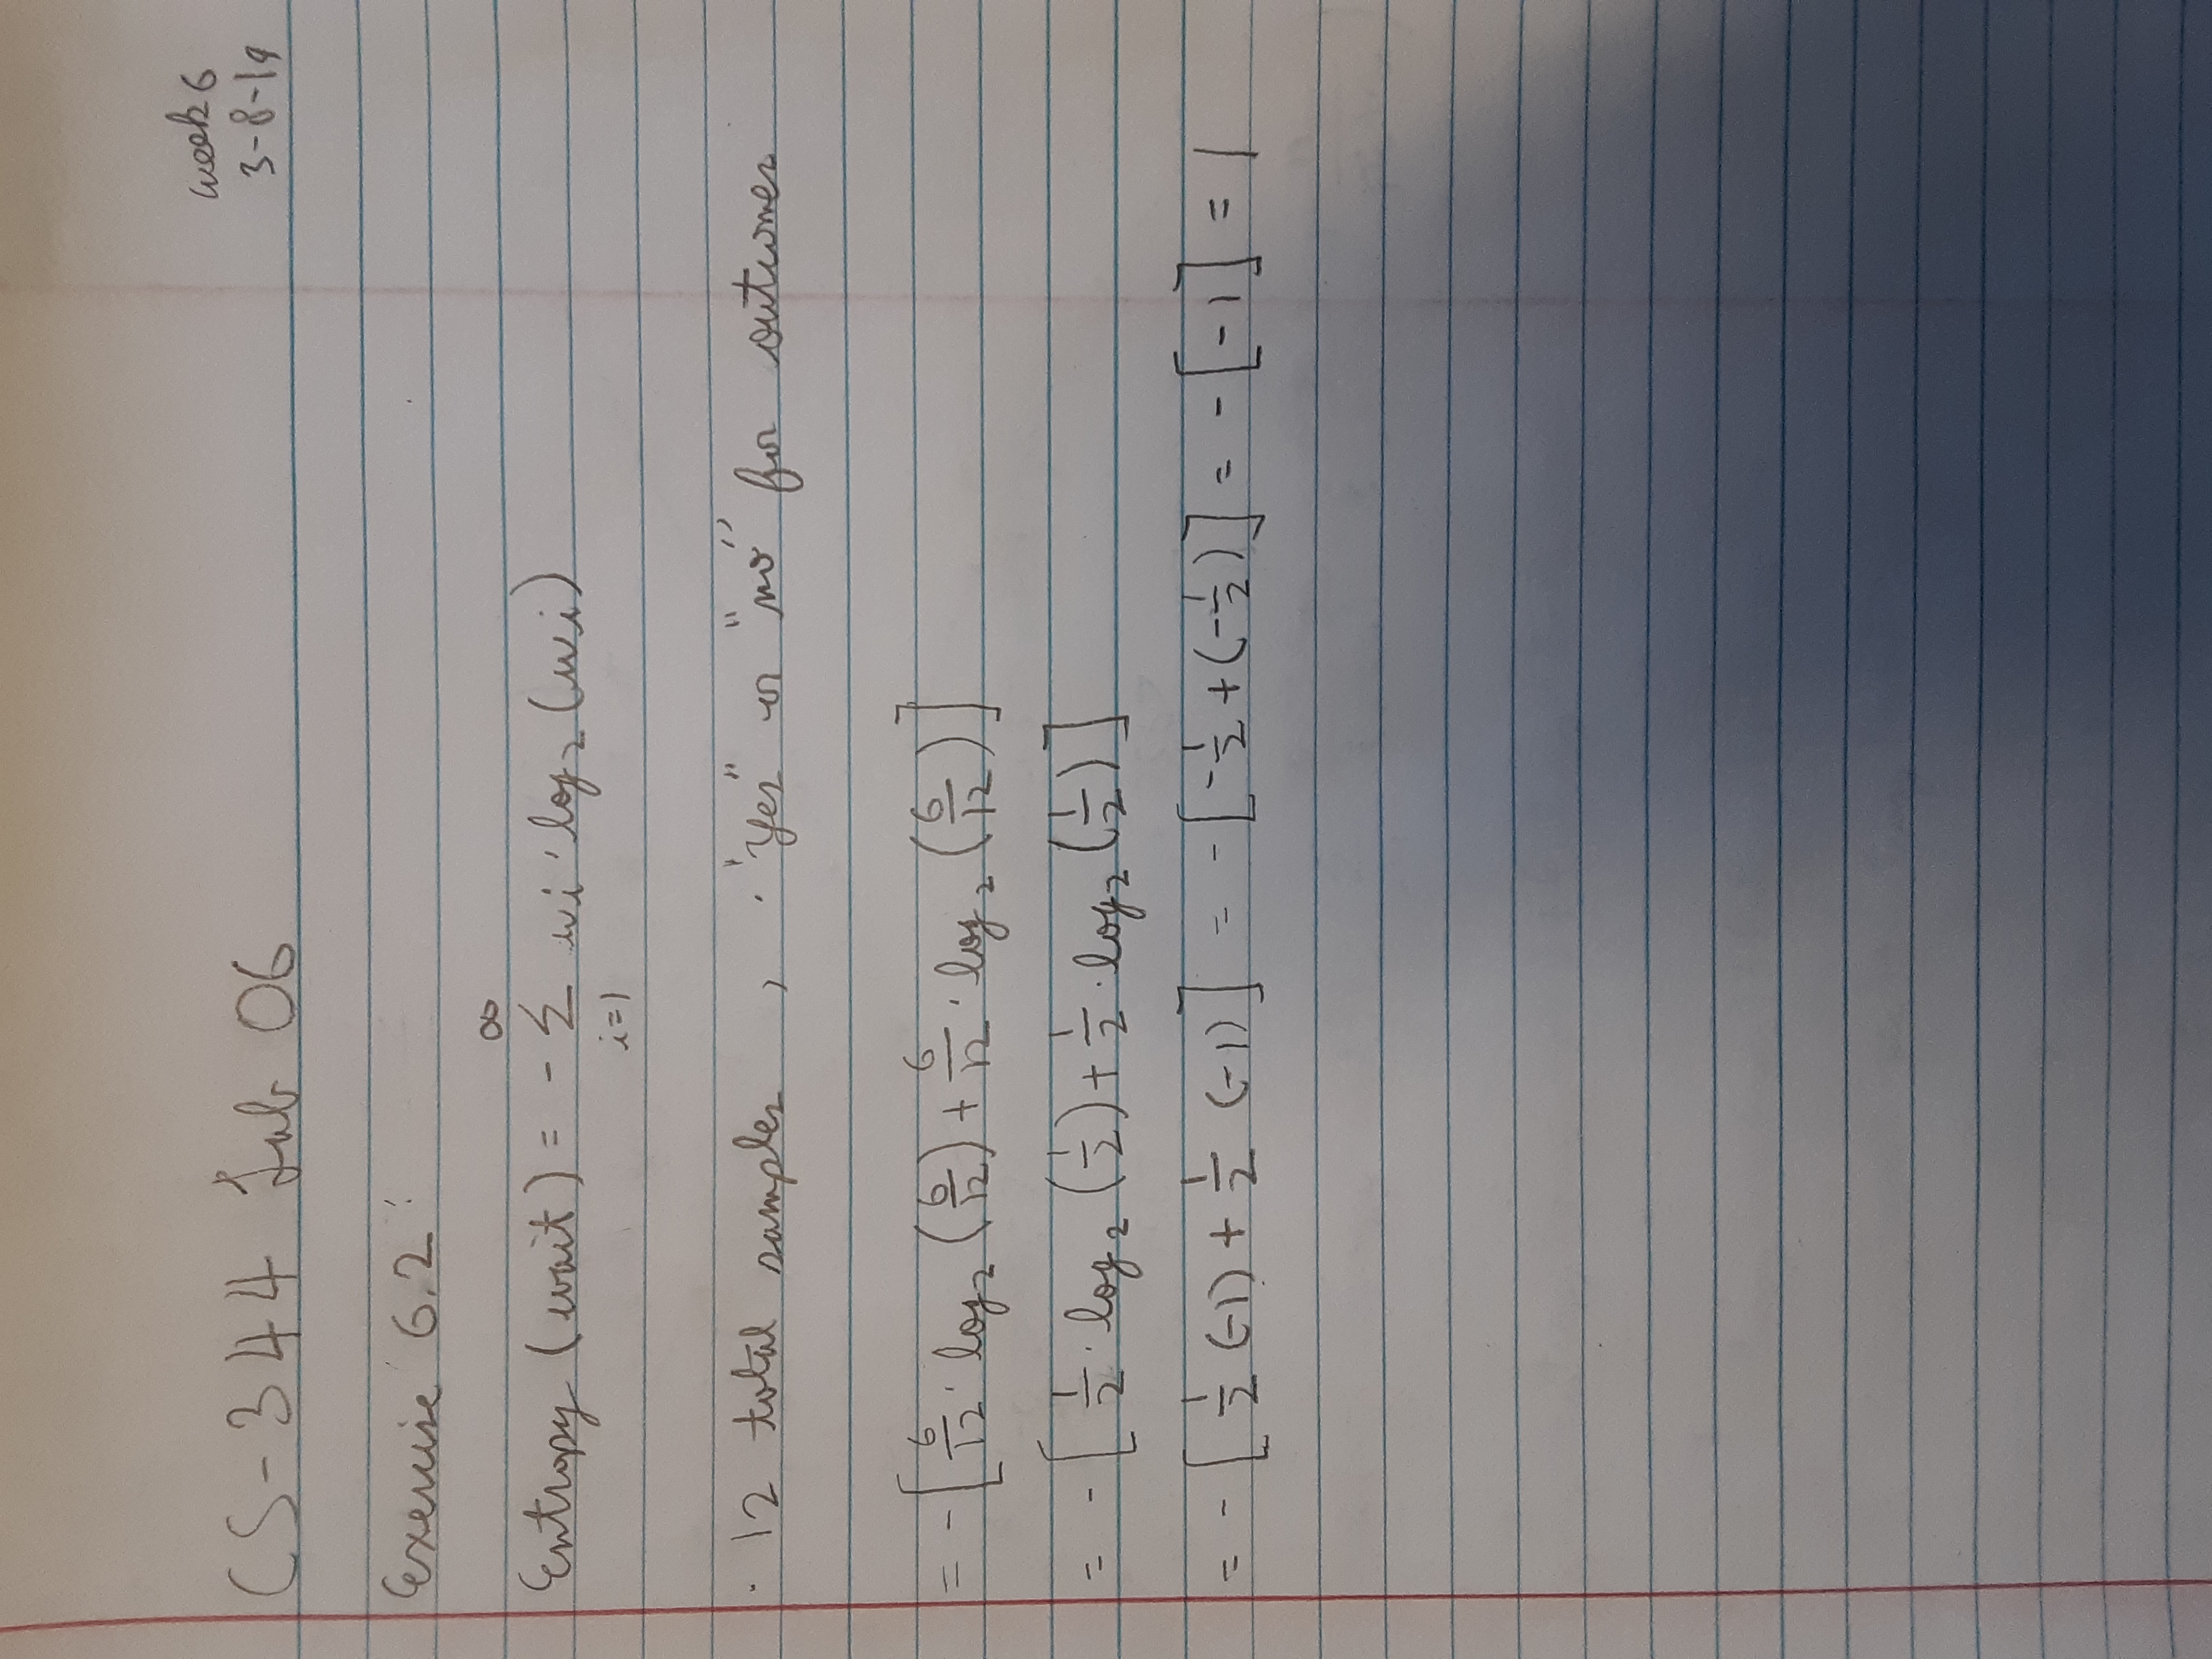 week 6
3-8-19
CS-344 Lab 06
Exercise 6.2:
∞
Entropy (wait) = - Σ wi · log₂ (wi)
i=1
· 12 total samples , · "Yes" or "no" for outcomes
= -[6/12 · log₂ (6/12) + 6/12 · log₂ (6/12)]
= - [1/2 · log₂ (1/2) + 1/2 · log₂ (1/2)]
= - [1/2 (-1) + 1/2 (-1)] = - [-1/2 + (-1/2)] = - [-1] = 1